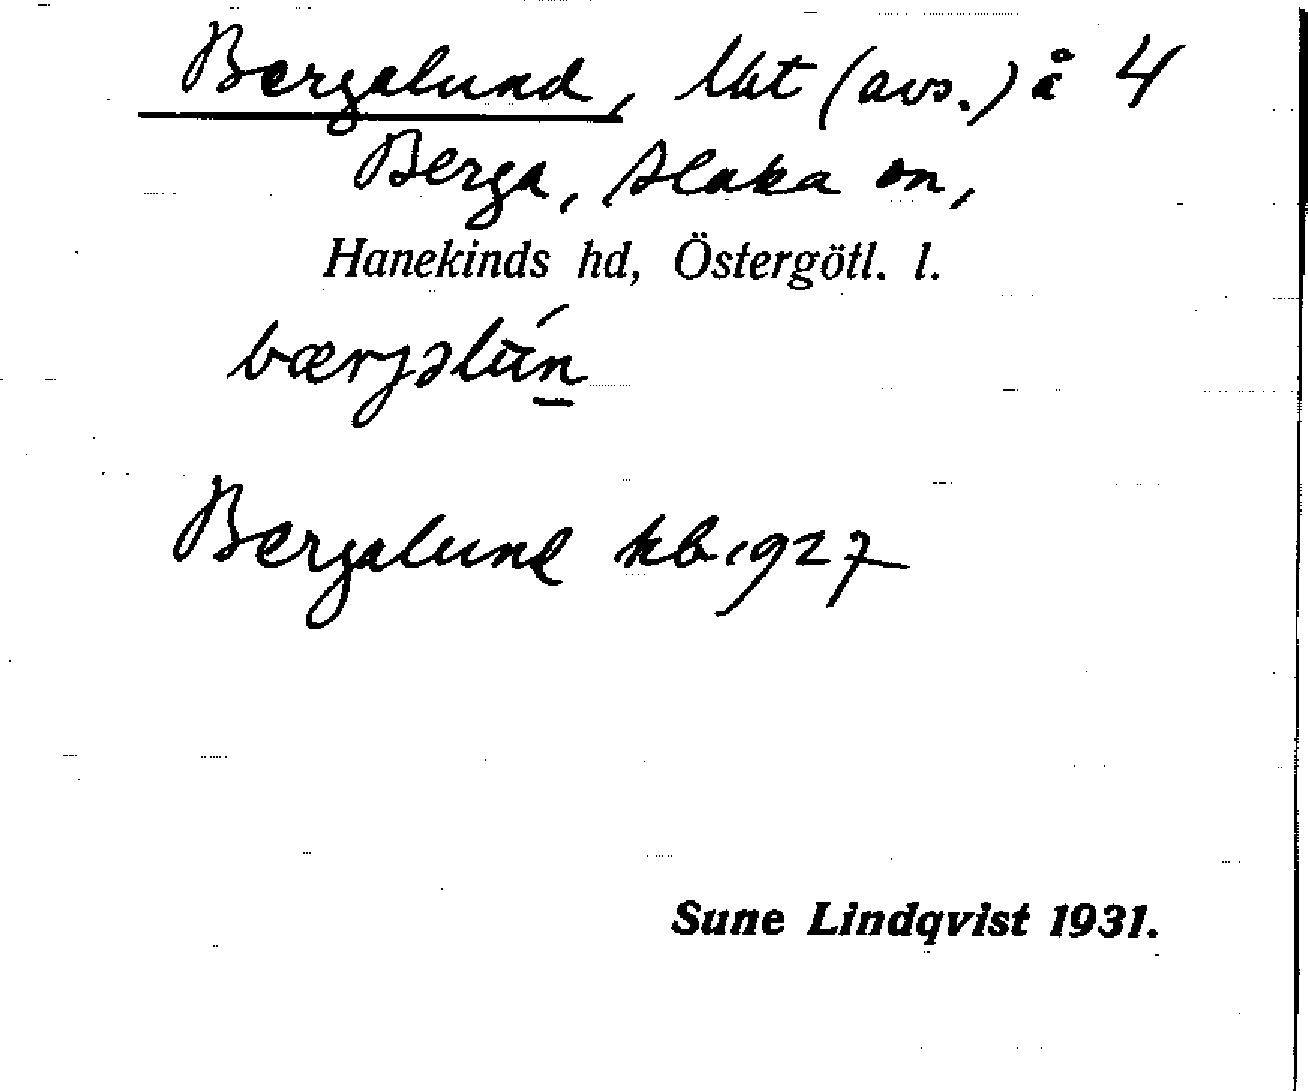 Bergalund, lht (avs.) å 4
Berga, Slaka sn,
Hanekinds hd, Östergötl. l.
bærjəlún
Bergalund kb 1927
Sune Lindqvist 1931.